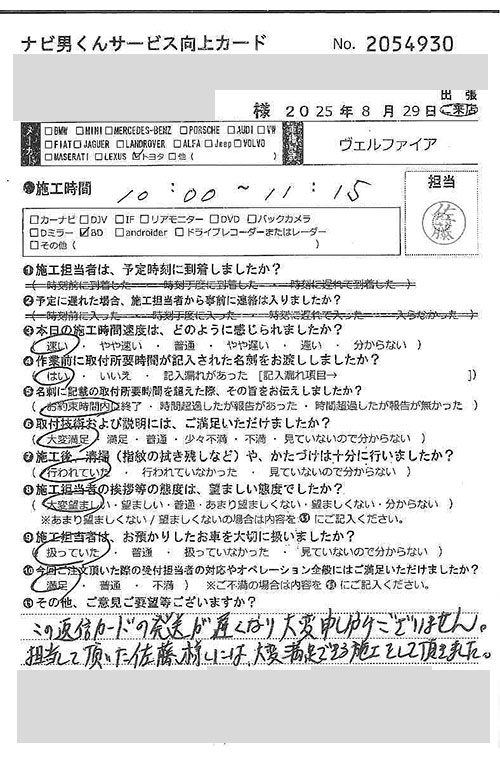 ナビ男くんサービス向上カード No. 2054930
出 張
様 2025年8月29日 ご来店
メーカー □BMW □MINI □MERCEDES-BENZ □PORSCHE □AUDI □VW
□FIAT □JAGUER □LANDROVER □ALFA □Jeep □VOLVO
□MASERATI □LEXUS ☑トヨタ □他 ( )
ヴェルファイア
●施工時間 10:00~11:15
担当
佐藤
□カーナビ □DJV □IF □リアモニター □DVD □バックカメラ
□Dミラー ☑BD □androider □ドライブレコーダーまたはレーダー
□その他 ( )
❶施工担当者は、予定時刻に到着しましたか?
( 時刻前に到着した ・ 時刻丁度に到着した ・ 時刻に遅れて到着した )
❷予定に遅れた場合、施工担当者から事前に連絡は入りましたか?
( 時刻前に入った ・ 時刻丁度に入った ・ 時刻に遅れて入った ・ 入らなかった )
❸本日の施工時間速度は、どのように感じられましたか?
( 速い ・ やや速い ・ 普通 ・ やや遅い ・ 遅い ・ 分からない )
❹作業前に取付所要時間が記入された名刺をお渡ししましたか?
( はい ・ いいえ ・ 記入漏れがあった [記入漏れ項目→ ])
❺名刺に記載の取付所要時間を超えた際、その旨をお伝えしましたか?
( お約束時間内に終了 ・ 時間超過したが報告があった ・ 時間超過したが報告が無かった )
❻取付技術および説明には、ご満足いただけましたか?
( 大変満足 ・ 満足 ・ 普通 ・ 少々不満 ・ 不満 ・ 見ていないので分からない )
❼施工後、清掃(指紋の拭き残しなど)や、かたづけは十分に行いましたか?
( 行われていた ・ 行われていなかった ・ 見ていないので分からない )
❽施工担当者の挨拶等の態度は、望ましい態度でしたか?
( 大変望ましい ・ 望ましい ・ 普通 ・ あまり望ましくない ・ 望ましくない ・ 分からない )
※あまり望ましくない / 望ましくないの場合は内容を⑪にご記入ください。
❾施工担当者は、お預かりしたお車を大切に扱いましたか?
( 扱っていた ・ 普通 ・ 扱っていなかった ・ 見ていないので分からない )
❿今回ご注文頂いた際の受付担当者の対応やオペレーション全般にはご満足いただけましたか?
( 満足 ・ 普通 ・ 不満 ) ※ご不満の場合は内容を⑪にご記入ください。
⓫その他、ご意見ご要望等ございますか?
この返信カードの発送が遅くなり大変申し訳ございません。
担当して頂いた佐藤様には、大変満足できる施工をして頂きました。